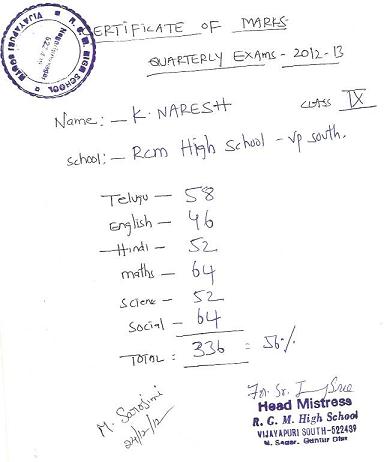 CERTIFICATE OF MARKS
QUARTERLY EXAMS - 2012-13
Name: - K. NARESH CLASS IX
School: - Rcm High School - VP South.
Telugu - 58
English - 46
Hindi - 52
maths - 64
Science - 52
Social - 64
TOTAL : 336 = 56%
M. Sarojini
24/12/12
For. Sr.
Head Mistress
R. C. M. High School
VIJAYAPURI SOUTH-522439
N. Sagar. Guntur Dist